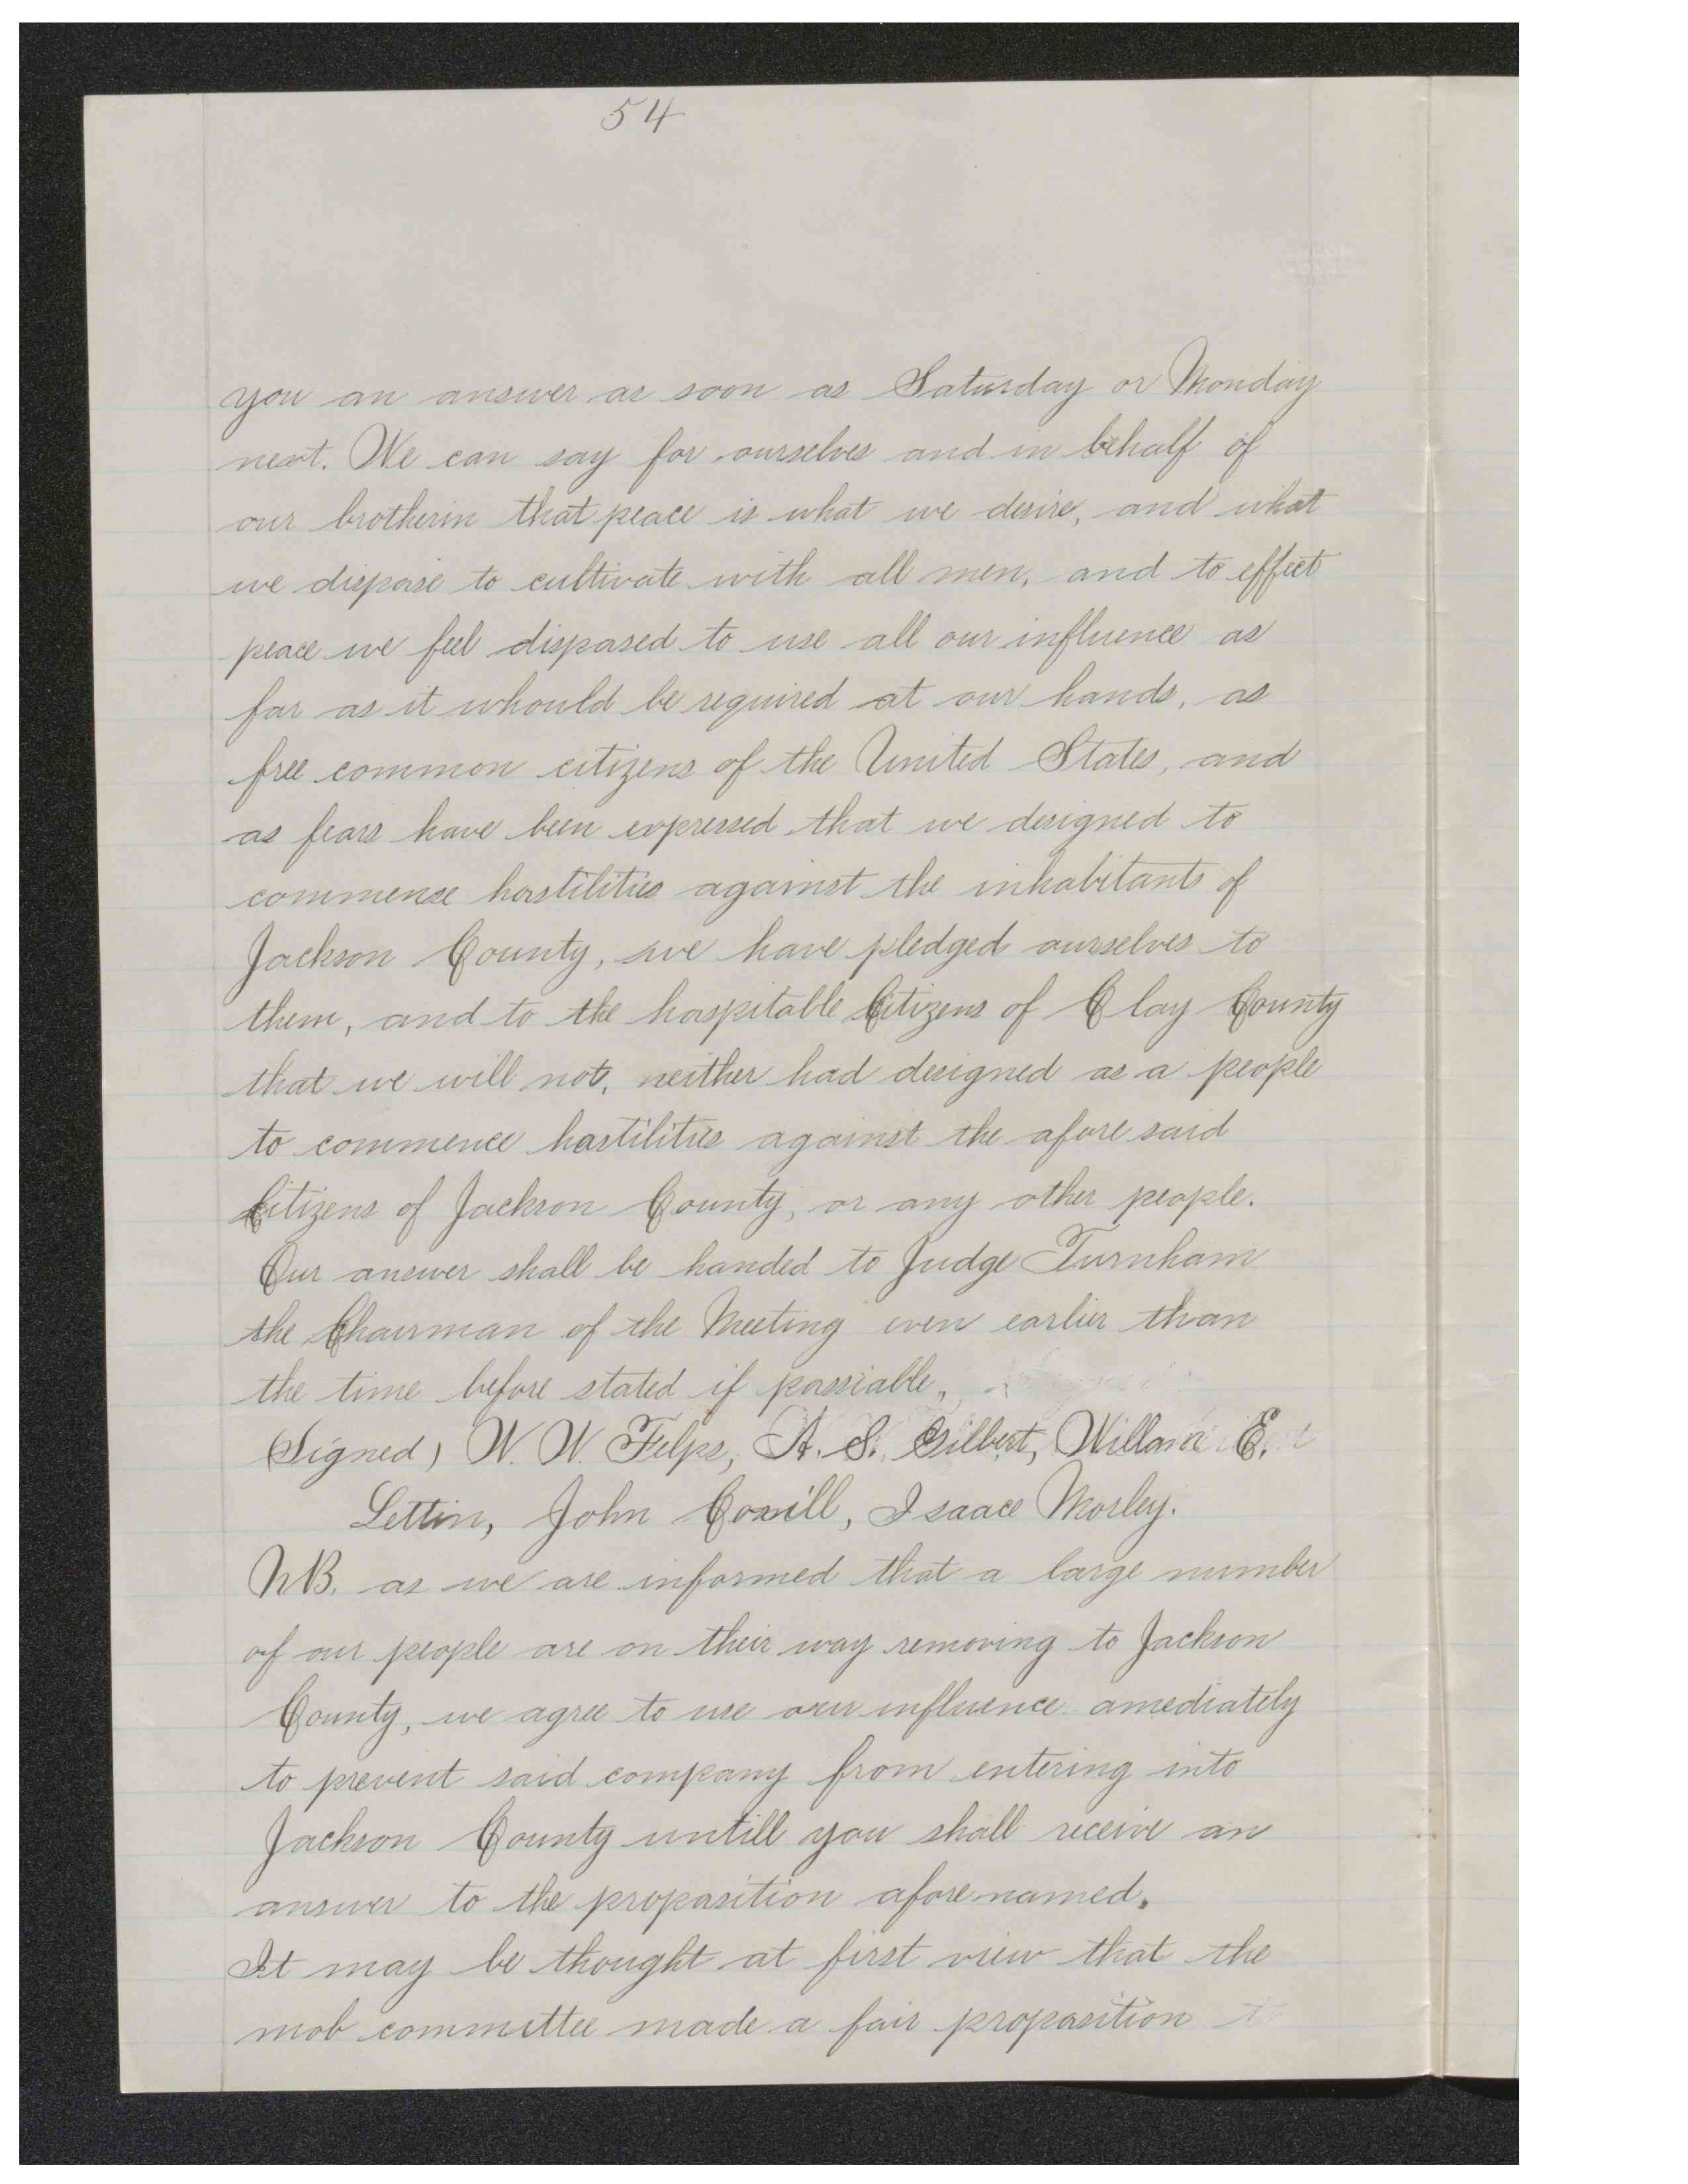 54
you an answer as soon as Saturday or Monday
next. We can say for ourselves and in behalf of
our brotherin that peace is what we desire, and what
we dispose to cultivate with all men, and to effect
peace we feel disposed to use all our influence as
far as it whould be required at our hands, as
free common citizens of the United States, and
as fears have been expressed that we designed to
commence hostilities against the inhabitants of
Jackson County, we have pledged ourselves to
them, and to the hospitable Citizens of Clay County
that we will not, neither had designed as a people
to commence hostilities against the afore said
Citizens of Jackson County, or any other people.
Our answer shall be handed to Judge Turnham
the Chairman of the Meeting even earlier than
the time before stated if possiable,,
(Signed) W. W. Felps, A. S. Gilbert, Willam E.
Lettin, John Corrill, Isaace Morley.
NB. as we are informed that a large number
of our people are on their way removing to Jackson
County, we agree to use our influence amediately
to prevent said company from entering into
Jackson County untill you shall receive an
answer to the proposition aforenamed.
It may be thought at first view that the
mob committee made a fair proposition